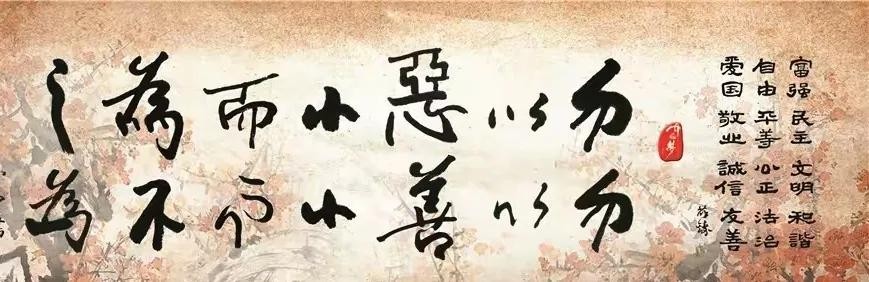 富强 民主 文明 和諧
自由 平等 公正 法治
爱国 敬业 誠信 友善
勿以惡小而為之
勿以善小而不為